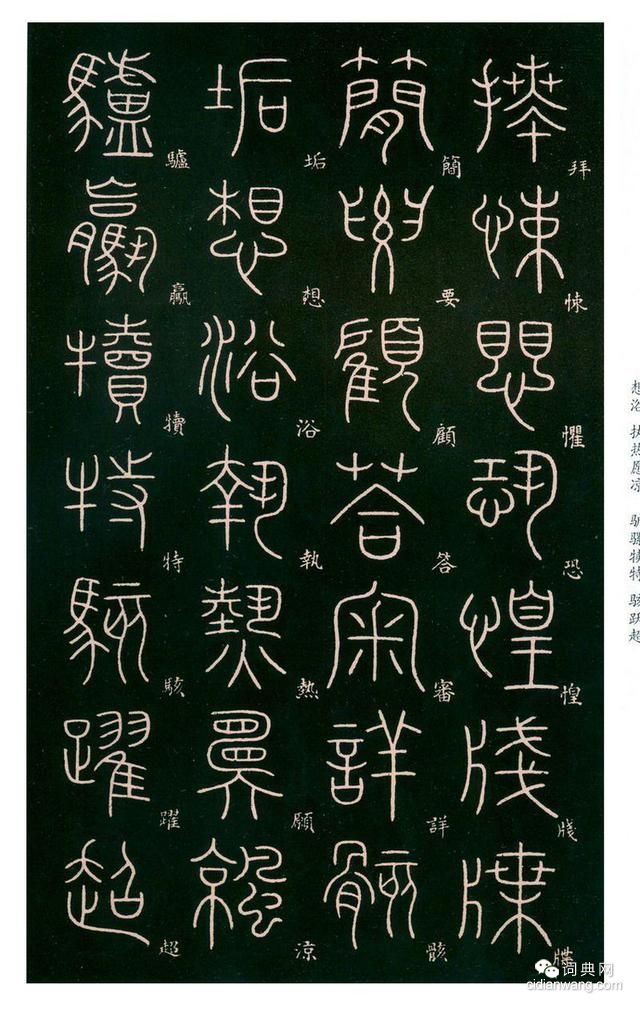 拜悚懼恐惶牋牒
簡要顧答審詳骸
垢想浴執熱願涼
驢贏犢特駭躍超
想浴 执热愿凉 驴骡犊特 骇跃超
词典网
cidianwang.com